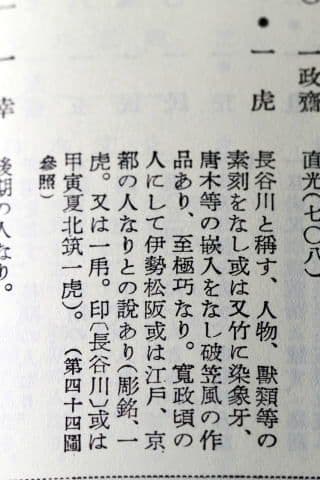 一政齋　直光(七〇八)
一虎
長谷川と稱す、人物、獸類等の
素刻をなし或は又竹に染象牙、
唐木等の嵌入をなし破笠風の作
品あり、至極巧なり。寬政頃の
人にして伊勢松阪或は江戶、京
都の人なりとの說あり(彫銘、一
虎。又は一乕。印〔長谷川〕或は
甲寅夏北筑一虎)。(第四十四圖
參照)
一幸　後期の人なり。